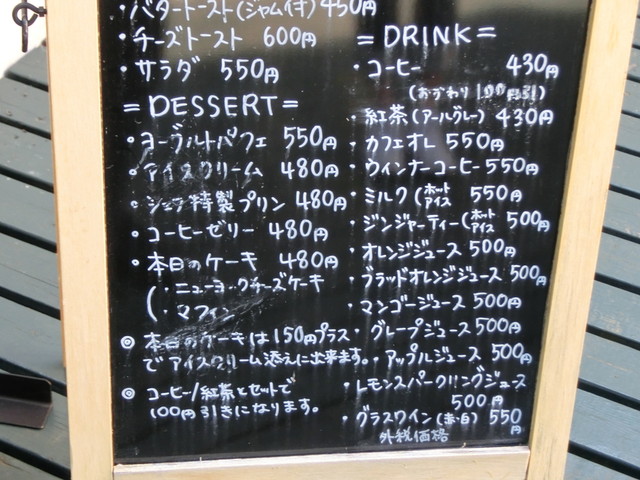 ・バタートースト(ジャム付) 450円
・チーズトースト 600円
・サラダ 550円
=DESSERT=
・ヨーグルトパフェ 550円
・アイスクリーム 480円
・シェフ特製プリン 480円
・コーヒーゼリー 480円
・本日のケーキ 480円
(・ニューヨークチーズケーキ
・マフィン
◎ 本日のケーキは150円プラス
でアイスクリーム添えに出来ます。
◎ コーヒー/紅茶とセットで
100円引きになります。
=DRINK=
・コーヒー 430円
(おかわり100円引)
・紅茶(アールグレー) 430円
・カフェオレ 550円
・ウィンナーコーヒー 550円
・ミルク(ホット アイス 550円
・ジンジャーティー(ホット アイス 500円
・オレンジジュース 500円
・ブラッドオレンジジュース 500円
・マンゴージュース 500円
・グレープジュース 500円
・アップルジュース 500円
・レモンスパークリングジュース
500円
・グラスワイン(赤・白) 550円
外税価格